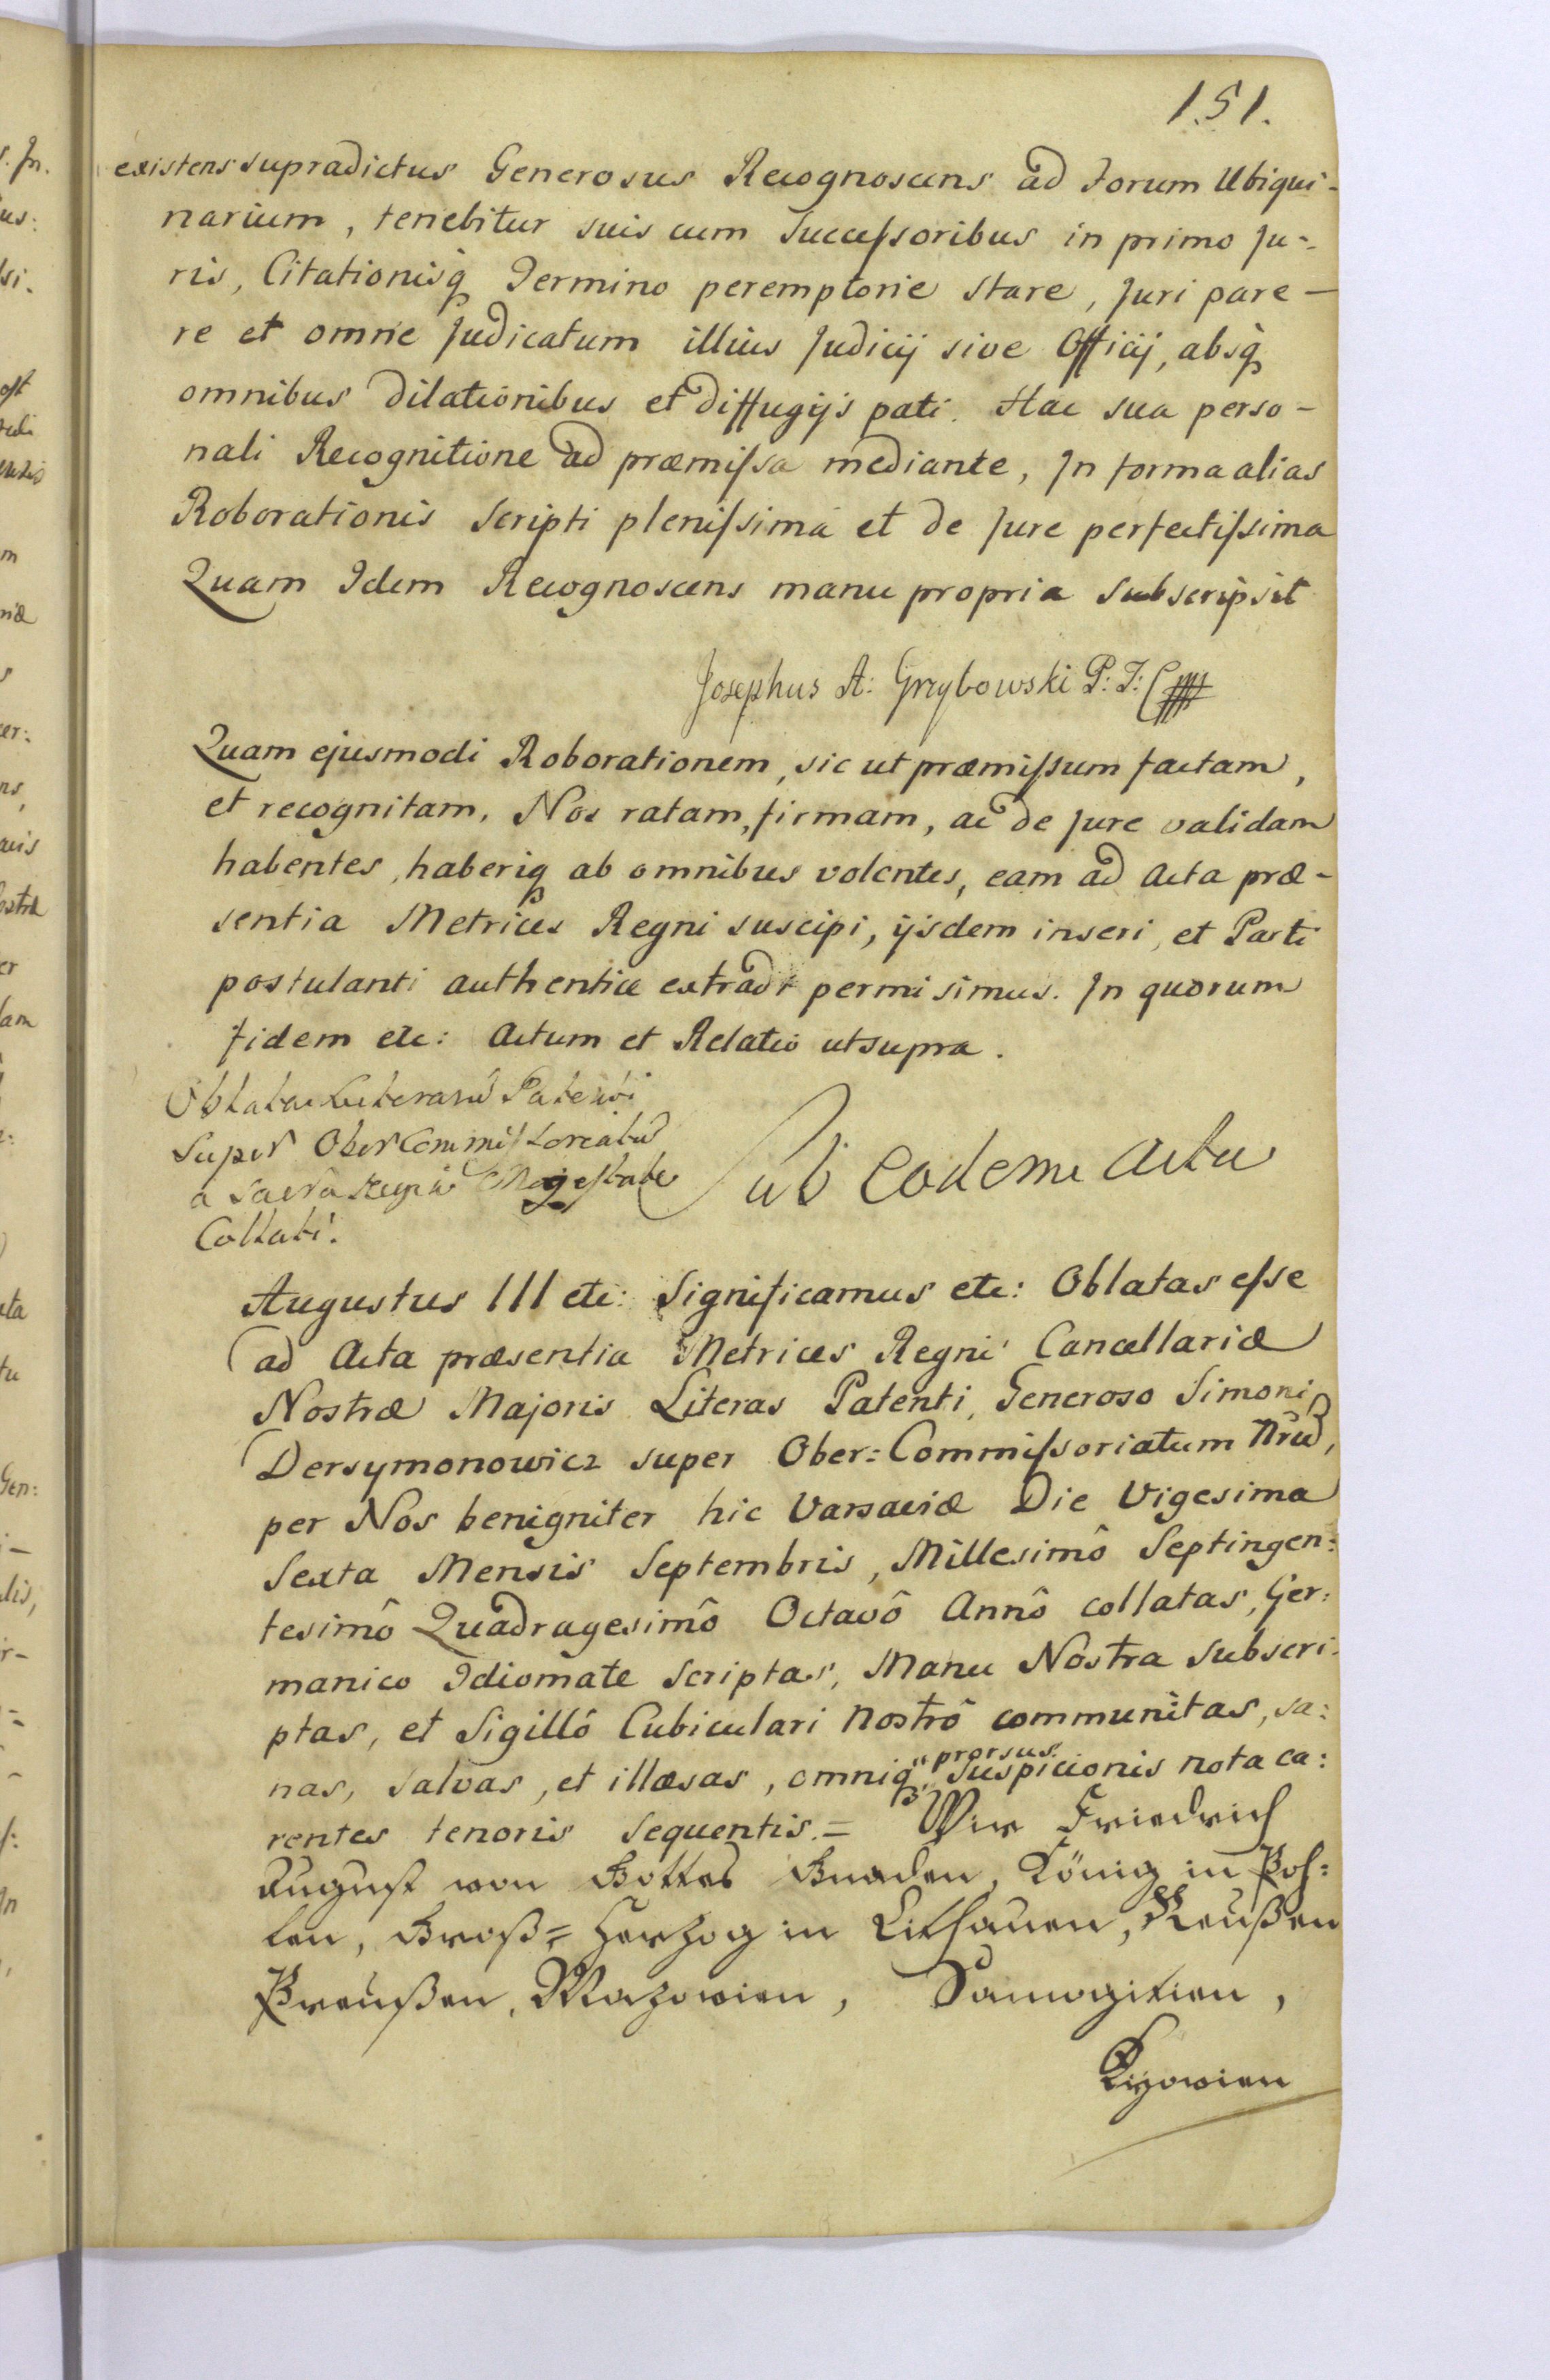 151.
existens supradictus Generosus Recognoscens ad Forum Ubiqui-
narium, tenebitur suis cum Succeſsoribus in primo Ju-
ris, Citationisq̃ Termino peremptorie stare, Juri pare-
re et omne Judicatum illius Judicij sive Officij, absq̃
omnibus dilationibus et diffugijs pati. Hac sua perso-
nali Recognitione ad præmiſsa mediante, In forma alias
Roborationis Scripti pleniſsima et de Jure perfectiſsima
Quam Idem Recognoscens manu propria subscripsit
Josephus A: Grzybowski P: J:
Quam ejusmodi Roborationem, sic ut præmiſsum factam,
et recognitam, Nos ratam, firmam, ac de Jure validam
habentes, haberiq̃ ab omnibus volentes, eam ad Acta præ-
sentia Metrices Regni suscipi, ijsdem inseri, et Parti
postulanti authentice extradi permisimus. In quorum
fidem etc: Actum et Relatio ut supra.
Oblatae Literarũ Patenti
super Ober Commiſsoreatũ
a Sacra Regia Majestate
Collati.
Sub eodem Actu
Augustus III etc: Significamus etc: Oblatas eſse
ad Acta præsentia Metrices Regni Cancellariæ
Nostræ Majoris Literas Patenti, Generoso Simoni
Dersymonowicz super Ober=Commiſsoriatum Nr̃ũ,
per Nos benigniter hic Varsaviæ Die Vigesima
Sexta Mensis Septembris, Millesimô Septingen:
tesimô Quadragesimô Octavô Annô collatas, Ger:
manico Idiomate Scriptas, Manu Nostra subscri:
ptas, et Sigillô Cubiculari nostrô communitas, sa:
nas, salvas, et illæsas, omniq̃ " prorsus suspicionis nota ca:
rentes tenoris sequentis. = Wir Friedrich
August von Gottes Gnaden, König in Poh:
len, Groß=Herzog in Litthauen, Reußen
Preußen, Mazovien, Samogitien,
Kyovien